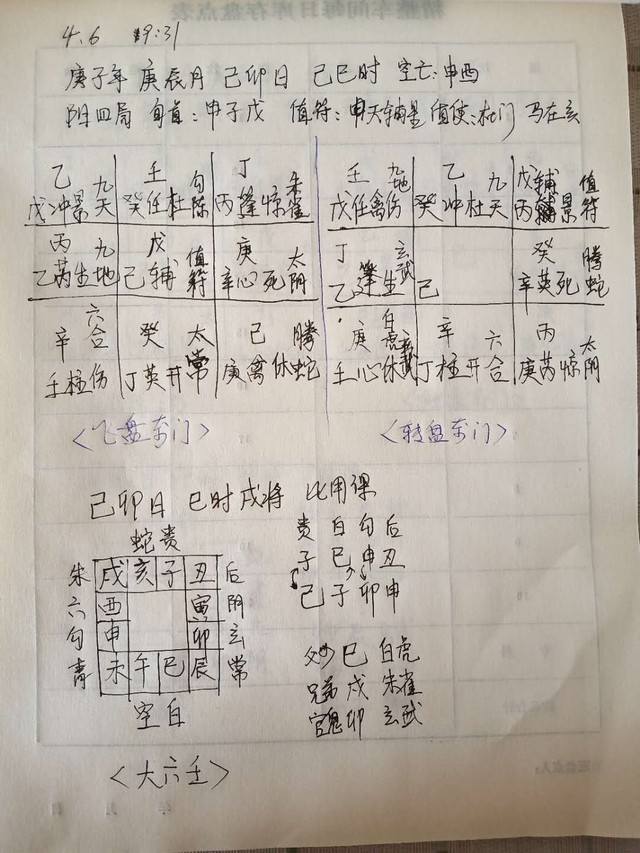 4.6 19:31
庚子年 庚辰月 己卯日 己巳时 空亡:申酉
阴四局 旬首:甲子戊 值符:申天辅星 值使:杜门 马在亥
乙 九天 戊冲景
壬 勾陈 癸任杜
丁 朱雀 丙蓬惊
丙 九地 乙芮生
戊 值符 己辅
庚 太阴 辛心死
辛 六合 壬柱伤
癸 太常 丁英开
己 螣蛇 庚禽休
壬 九地 戊任禽伤
乙 九天 癸冲杜
戊辅 值符 丙景
丁 玄武 乙蓬生
己
癸 螣蛇 辛英死
庚 白虎 壬心休
辛 六合 丁柱开
丙 太阴 庚芮惊
<飞盘奇门>
<转盘奇门>
己卯日 巳时戌将 比用课
蛇贵
朱 戌亥子丑 后
六 酉 寅 阴
勾 申 卯 玄
青 未午巳辰 常
空白
<大六壬>
贵白勾后
子巳申丑
己子卯申
父 巳 白虎
兄弟 戌 朱雀
官鬼 卯 玄武
精整车间每日库存盘点表